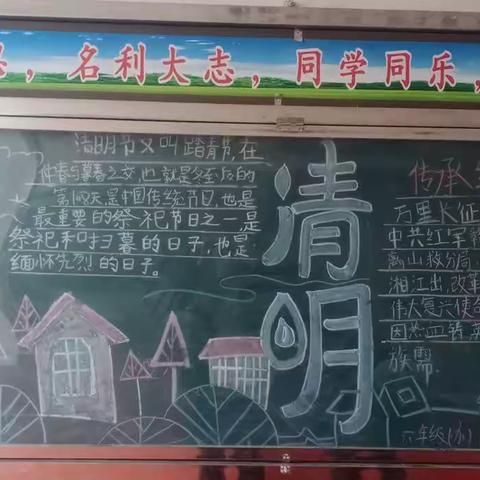 ，名利大志，同学同乐，
清明节又叫踏青节，在
仲春与暮春之交，也就是冬至后的
第108天是中国传统节日，也是
最重要的祭祀节日之一，是
祭祀和扫暮的日子，也是
缅怀先烈的日子。
清明
传承
万里长征
中共红军
离山救分局，
湘江出，改革
伟大复兴使命
因热血铸英
族需.
六年级